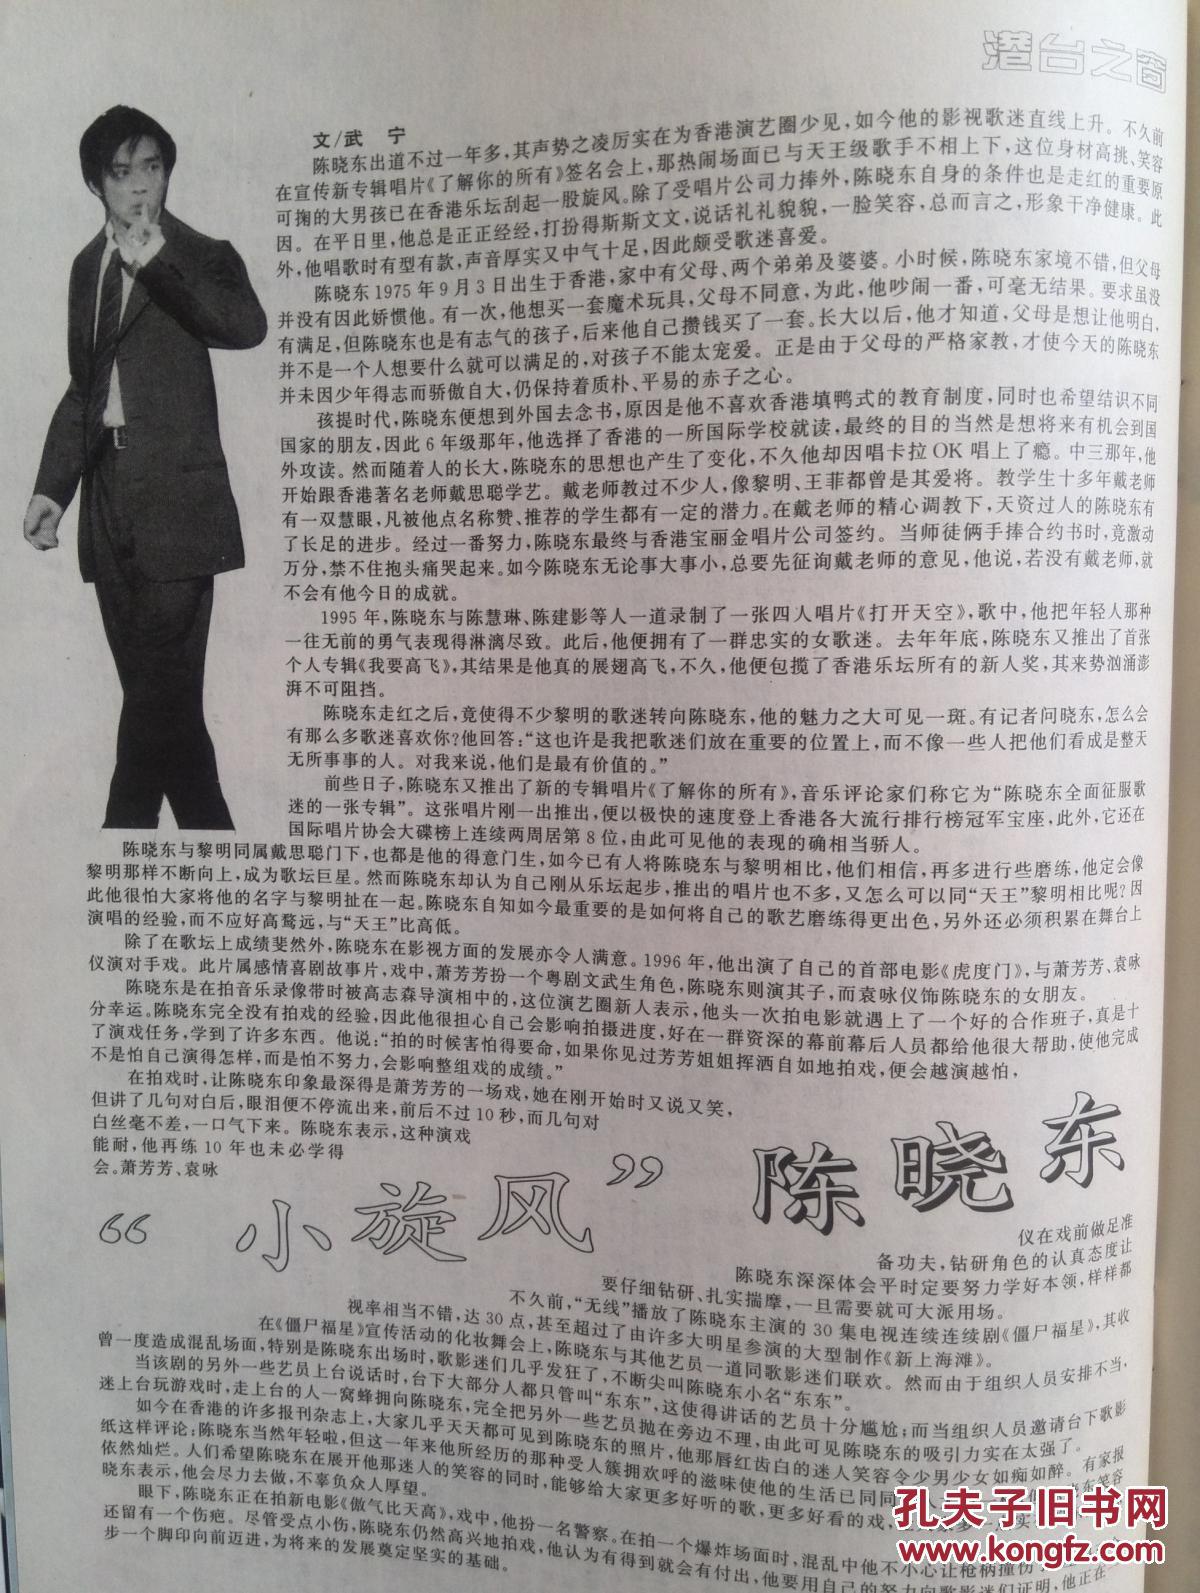 港台之窗
文/武 宁
陈晓东出道不过一年多，其声势之凌厉实在为香港演艺圈少见，如今他的影视歌迷直线上升。不久前
在宣传新专辑唱片《了解你的所有》签名会上，那热闹场面已与天王级歌手不相上下，这位身材高挑、笑容
可掬的大男孩已在香港乐坛刮起一股旋风。除了受唱片公司力捧外，陈晓东自身的条件也是走红的重要原
因。在平日里，他总是正正经经，打扮得斯斯文文，说话礼礼貌貌，一脸笑容，总而言之，形象干净健康。此
外，他唱歌时有型有款，声音厚实又中气十足，因此颇受歌迷喜爱。
陈晓东1975年9月3日出生于香港，家中有父母、两个弟弟及婆婆。小时候，陈晓东家境不错，但父母
并没有因此娇惯他。有一次，他想买一套魔术玩具，父母不同意，为此，他吵闹一番，可毫无结果。要求虽没
有满足，但陈晓东也是有志气的孩子，后来他自己攒钱买了一套。长大以后，他才知道，父母是想让他明白，
并不是一个人想要什么就可以满足的，对孩子不能太宠爱。正是由于父母的严格家教，才使今天的陈晓东
并未因少年得志而骄傲自大，仍保持着质朴、平易的赤子之心。
孩提时代，陈晓东便想到外国去念书，原因是他不喜欢香港填鸭式的教育制度，同时也希望结识不同
国家的朋友，因此6年级那年，他选择了香港的一所国际学校就读，最终的目的当然是想将来有机会到国
外攻读。然而随着人的长大，陈晓东的思想也产生了变化，不久他却因唱卡拉OK唱上了瘾。中三那年，他
开始跟香港著名老师戴思聪学艺。戴老师教过不少人，像黎明、王菲都曾是其爱将。教学生十多年戴老师
有一双慧眼，凡被他点名称赞、推荐的学生都有一定的潜力。在戴老师的精心调教下，天资过人的陈晓东有
了长足的进步。经过一番努力，陈晓东最终与香港宝丽金唱片公司签约。当师徒俩手捧合约书时，竟激动
万分，禁不住抱头痛哭起来。如今陈晓东无论事大事小，总要先征询戴老师的意见，他说，若没有戴老师，就
不会有他今日的成就。
1995年，陈晓东与陈慧琳、陈建影等人一道录制了一张四人唱片《打开天空》，歌中，他把年轻人那种
一往无前的勇气表现得淋漓尽致。此后，他便拥有了一群忠实的女歌迷。去年年底，陈晓东又推出了首张
个人专辑《我要高飞》，其结果是他真的展翅高飞，不久，他便包揽了香港乐坛所有的新人奖，其来势汹涌澎
湃不可阻挡。
陈晓东走红之后，竟使得不少黎明的歌迷转向陈晓东，他的魅力之大可见一斑。有记者问晓东，怎么会
有那么多歌迷喜欢你？他回答：“这也许是我把歌迷们放在重要的位置上，而不像一些人把他们看成是整天
无所事事的人。对我来说，他们是最有价值的。”
前些日子，陈晓东又推出了新的专辑唱片《了解你的所有》，音乐评论家们称它为“陈晓东全面征服歌
迷的一张专辑”。这张唱片刚一出推出，便以极快的速度登上香港各大流行排行榜冠军宝座，此外，它还在
国际唱片协会大碟榜上连续两周居第8位，由此可见他的表现的确相当骄人。
陈晓东与黎明同属戴思聪门下，也都是他的得意门生，如今已有人将陈晓东与黎明相比，他们相信，再多进行些磨练，他定会像
黎明那样不断向上，成为歌坛巨星。然而陈晓东却认为自己刚从乐坛起步，推出的唱片也不多，又怎么可以同“天王”黎明相比呢？因
此他很怕大家将他的名字与黎明扯在一起。陈晓东自知如今最重要的是如何将自己的歌艺磨练得更出色，另外还必须积累在舞台上
演唱的经验，而不应好高骛远，与“天王”比高低。
除了在歌坛上成绩斐然外，陈晓东在影视方面的发展亦令人满意。1996年，他出演了自己的首部电影《虎度门》，与萧芳芳、袁咏
仪演对手戏。此片属感情喜剧故事片，戏中，萧芳芳扮一个粤剧文武生角色，陈晓东则演其子，而袁咏仪饰陈晓东的女朋友。
陈晓东是在拍音乐录像带时被高志森导演相中的，这位演艺圈新人表示，他头一次拍电影就遇上了一个好的合作班子，真是十
分幸运。陈晓东完全没有拍戏的经验，因此他很担心自己会影响拍摄进度，好在一群资深的幕前幕后人员都给他很大帮助，使他完成
了演戏任务，学到了许多东西。他说：“拍的时候害怕得要命，如果你见过芳芳姐姐挥洒自如地拍戏，便会越演越怕，
不是怕自己演得怎样，而是怕不努力，会影响整组戏的成绩。”
在拍戏时，让陈晓东印象最深得是萧芳芳的一场戏，她在刚开始时又说又笑，
但讲了几句对白后，眼泪便不停流出来，前后不过10秒，而几句对
白丝毫不差，一口气下来。陈晓东表示，这种演戏
能耐，他再练10年也未必学得
会。萧芳芳、袁咏
“小旋风”陈晓东
仪在戏前做足准
备功夫，钻研角色的认真态度让
陈晓东深深体会平时定要努力学好本领，样样都
要仔细钻研、扎实揣摩，一旦需要就可大派用场。
不久前，“无线”播放了陈晓东主演的30集电视连续连续剧《僵尸福星》，其收
视率相当不错，达30点，甚至超过了由许多大明星参演的大型制作《新上海滩》。
在《僵尸福星》宣传活动的化妆舞会上，陈晓东与其他艺员一道同歌影迷们联欢。然而由于组织人员安排不当，
曾一度造成混乱场面，特别是陈晓东出场时，歌影迷们几乎发狂了，不断尖叫陈晓东小名“东东”。
当该剧的另外一些艺员上台说话时，台下大部分人都只管叫“东东”，这使得讲话的艺员十分尴尬；而当组织人员邀请台下歌影
迷上台玩游戏时，走上台的人一窝蜂拥向陈晓东，完全把另外一些艺员抛在旁边不理，由此可见陈晓东的吸引力实在太强了。
如今在香港的许多报刊杂志上，大家几乎天天都可见到陈晓东的照片，他那唇红齿白的迷人笑容令少男少女如痴如醉。有家报
纸这样评论：陈晓东当然年轻啦，但这一年来他所经历的那种受人簇拥欢呼的滋味使他的生活已同同 人 东笑容
依然灿烂。人们希望陈晓东在展开他那迷人的笑容的同时，能够给大家更多好听的歌，更多好看的戏，
晓东表示，他会尽力去做，不辜负众人厚望。
眼下，陈晓东正在拍新电影《傲气比天高》，戏中，他扮一名警察。在拍一个爆炸场面时，混乱中他不小心让枪柄撞伤
还留有一个伤疤。尽管受点小伤，陈晓东仍然高兴地拍戏，他认为有得到就会有付出，他要用自己的努力向歌影迷们证明，他正在
步一个脚印向前迈进，为将来的发展奠定坚实的基础。
孔夫子旧书网
www.kongfz.com